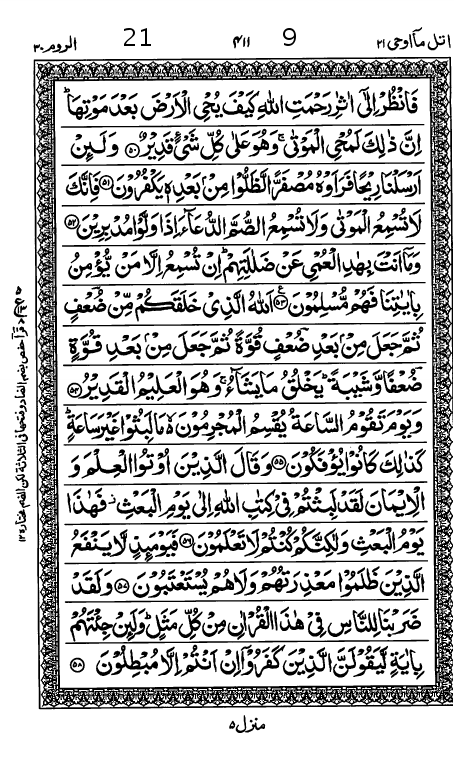 اتل مآ اوحی ۲۱ 9 ۴۱۱ 21 الروم ۳۰
فَانْظُرْ اِلٰۤى اٰثٰرِ رَحْمَتِ اللّٰهِ كَيْفَ يُحْيِ الْاَرْضَ بَعْدَ مَوْتِهَا ؕ
اِنَّ ذٰلِكَ لَمُحْيِ الْمَوْتٰى ۚ وَهُوَ عَلٰى كُلِّ شَيْءٍ قَدِيْرٌ ۵۰ وَلَىِٕنْ
اَرْسَلْنَا رِيْحًا فَرَاَوْهُ مُصْفَرًّا لَّظَلُّوْا مِنْۢ بَعْدِهٖ يَكْفُرُوْنَ ۵۱ فَاِنَّكَ
لَا تُسْمِعُ الْمَوْتٰى وَلَا تُسْمِعُ الصُّمَّ الدُّعَآءَ اِذَا وَلَّوْا مُدْبِرِيْنَ ۵۲
وَمَاۤ اَنْتَ بِهٰدِ الْعُمْيِ عَنْ ضَلٰلَتِهِمْ ؕ اِنْ تُسْمِعُ اِلَّا مَنْ يُّؤْمِنُ
بِاٰيٰتِنَا فَهُمْ مُّسْلِمُوْنَ ۵۳ ع اَللّٰهُ الَّذِيْ خَلَقَكُمْ مِّنْ ضُعْفٍ
ثُمَّ جَعَلَ مِنْۢ بَعْدِ ضُعْفٍ قُوَّةً ثُمَّ جَعَلَ مِنْۢ بَعْدِ قُوَّةٍ
ضُعْفًا وَّشَيْبَةً ؕ يَخْلُقُ مَا يَشَآءُ ۚ وَهُوَ الْعَلِيْمُ الْقَدِيْرُ ۵۴
وَيَوْمَ تَقُوْمُ السَّاعَةُ يُقْسِمُ الْمُجْرِمُوْنَ ۙ مَا لَبِثُوْا غَيْرَ سَاعَةٍ ؕ
كَذٰلِكَ كَانُوْا يُؤْفَكُوْنَ ۵۵ وَقَالَ الَّذِيْنَ اُوْتُوا الْعِلْمَ وَ
الْاِيْمَانَ لَقَدْ لَبِثْتُمْ فِيْ كِتٰبِ اللّٰهِ اِلٰى يَوْمِ الْبَعْثِ ؗ فَهٰذَا
يَوْمُ الْبَعْثِ وَلٰكِنَّكُمْ كُنْتُمْ لَا تَعْلَمُوْنَ ۵۶ فَيَوْمَىِٕذٍ لَّا يَنْفَعُ
الَّذِيْنَ ظَلَمُوْا مَعْذِرَتُهُمْ وَلَا هُمْ يُسْتَعْتَبُوْنَ ۵۷ وَلَقَدْ
ضَرَبْنَا لِلنَّاسِ فِيْ هٰذَا الْقُرْاٰنِ مِنْ كُلِّ مَثَلٍ ؕ وَلَىِٕنْ جِئْتَهُمْ
بِاٰيَةٍ لَّيَقُوْلَنَّ الَّذِيْنَ كَفَرُوْۤا اِنْ اَنْتُمْ اِلَّا مُبْطِلُوْنَ ۵۸
قرأ حفص بضم الضاد وفتحها فی الثلاثة لکن الضم مختاره ۱۲
منزل ۵